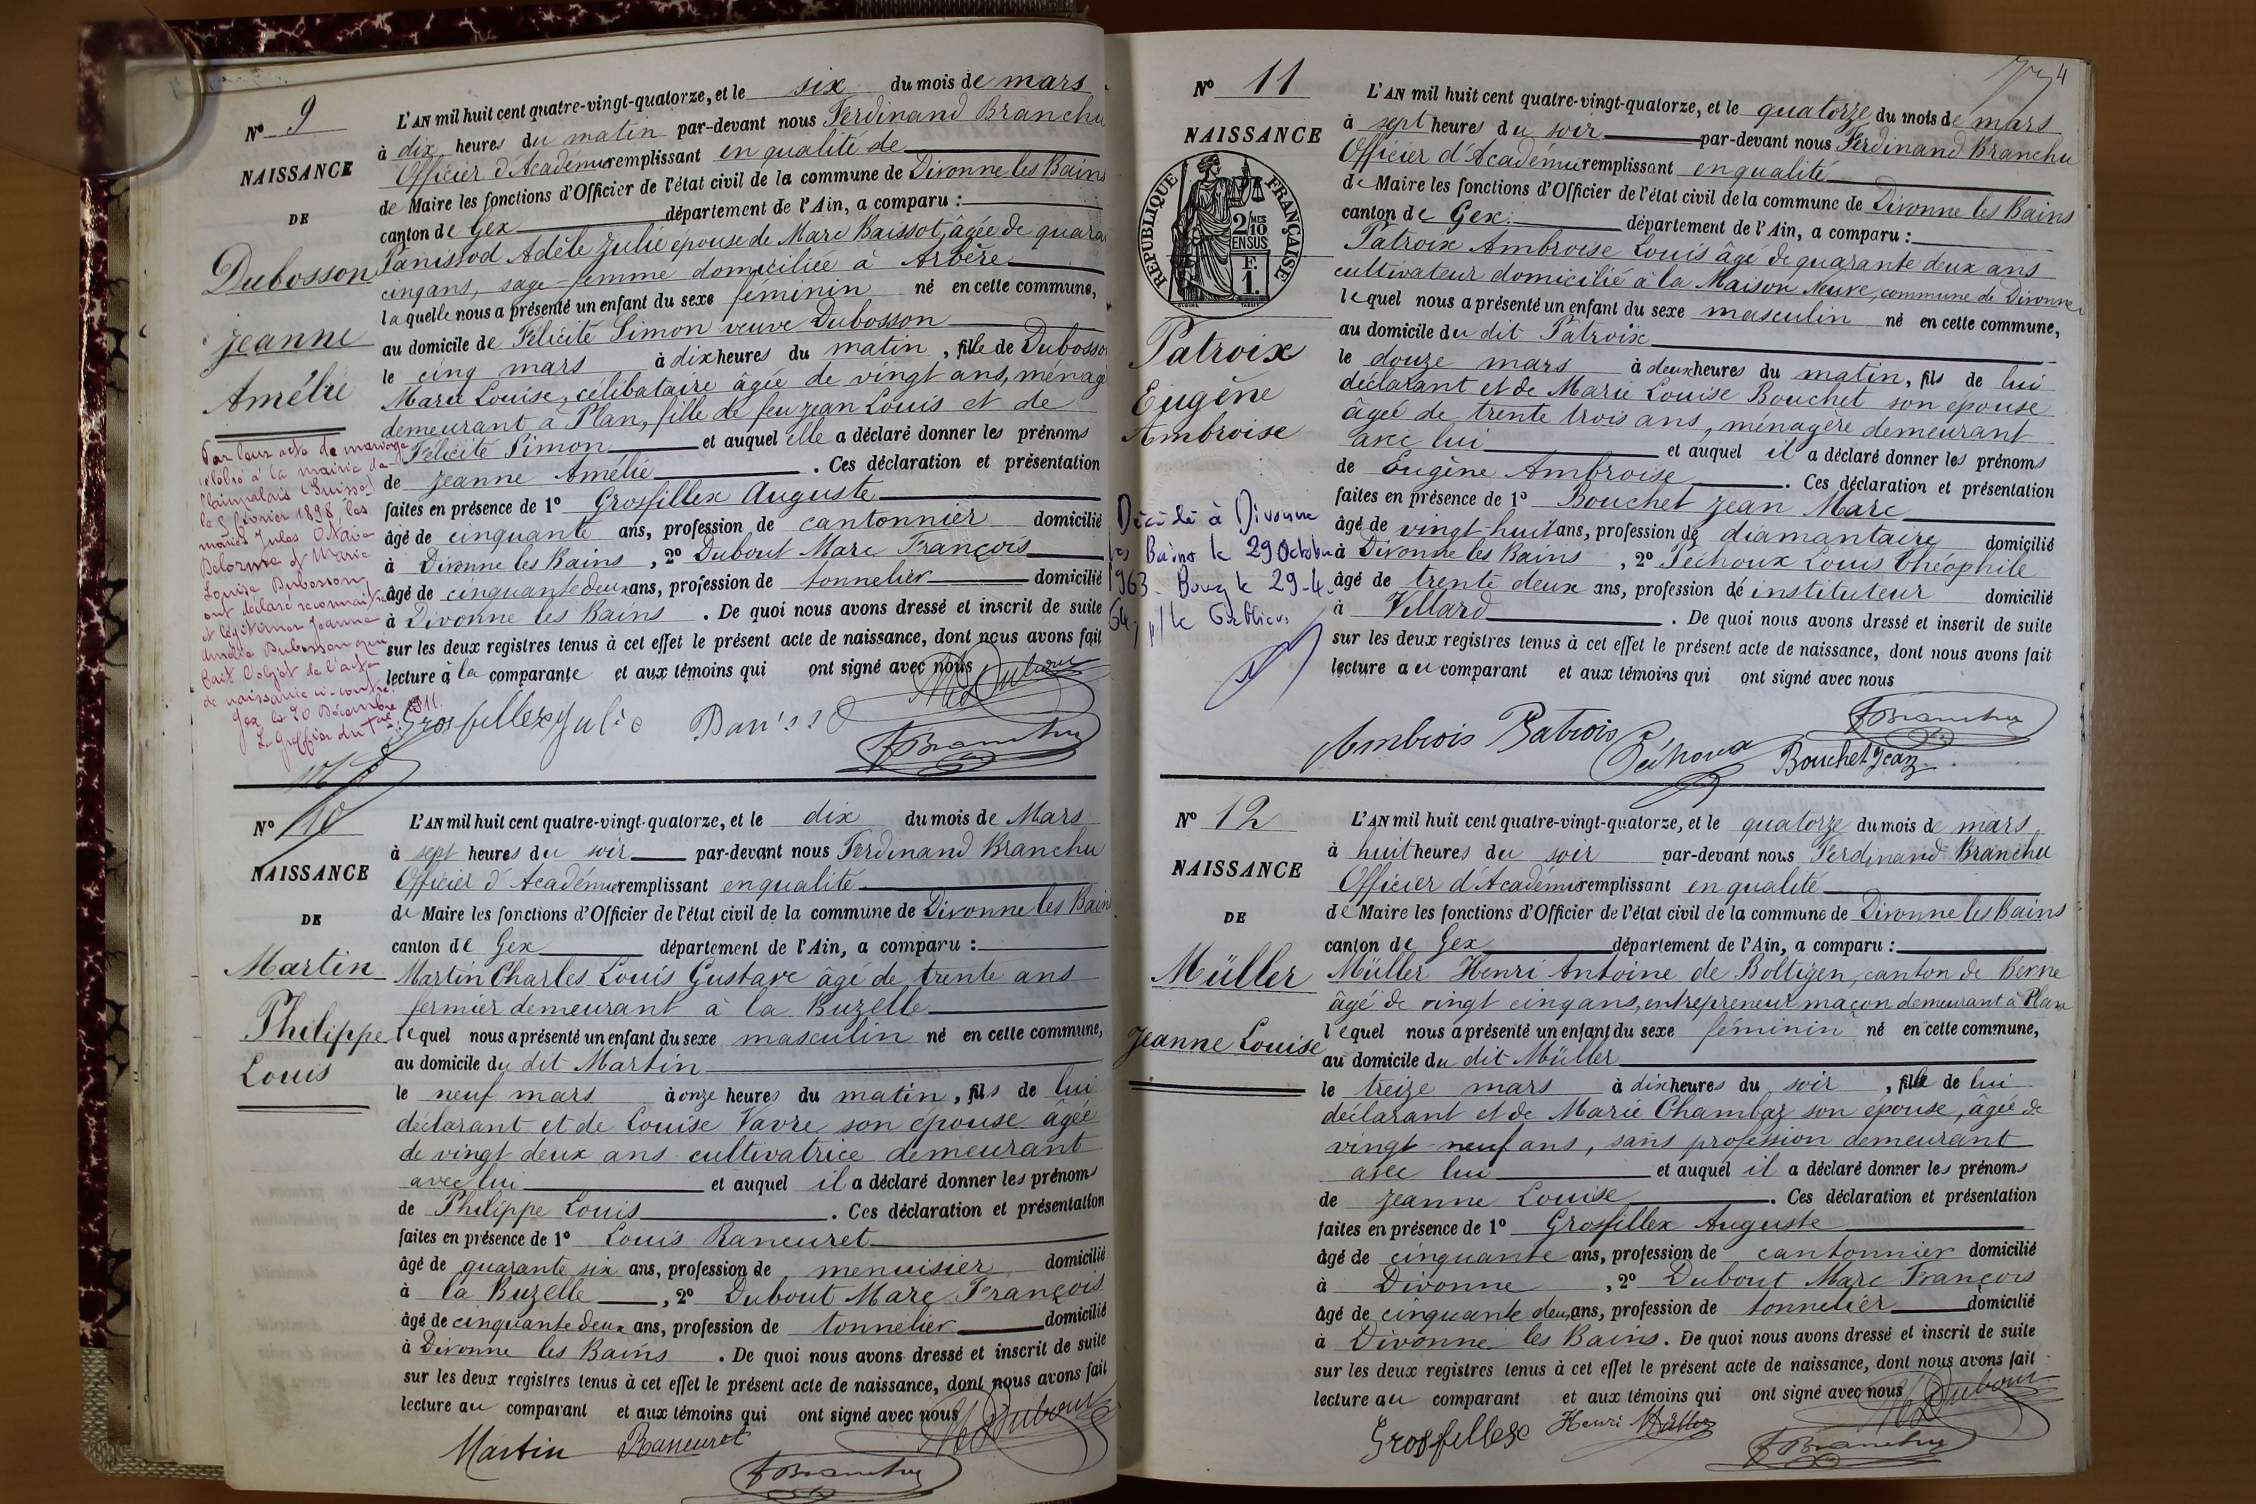 Nº 9
NAISSANCE
DE
Dubosson
Jeanne
Amélie
L'AN mil huit cent quatre-vingt-quatorze, et le six du mois de mars
à dix heures du matin par-devant nous Ferdinand Branchu
Officier d'Académie remplissant en qualité de
de Maire les fonctions d'Officier de l'état civil de la commune de Divonne les Bains
canton de Gex département de l'Ain, a comparu :
Panissod Adèle Julie épouse de Marc Baissot, âgée de quara
cinq ans, sage-femme domiciliée à Arbère
laquelle nous a présenté un enfant du sexe féminin né en cette commune,
au domicile de Félicité Simon veuve Dubosson
le cinq mars à dix heures du matin, fille de Dubosso
Marie Louise, célibataire âgée de vingt ans, ménag
demeurant à Plan, fille de feu Jean Louis et de
Félicité Simon et auquel elle a déclaré donner les prénoms
de Jeanne Amélie. Ces déclaration et présentation
faites en présence de 1º Grosfillex Auguste
âgé de cinquante ans, profession de cantonnier domicilié
à Divonne les Bains, 2º Dubout Marc François
âgé de cinquante deux ans, profession de tonnelier domicilié
à Divonne les Bains. De quoi nous avons dressé et inscrit de suite
sur les deux registres tenus à cet effet le présent acte de naissance, dont nous avons fait
lecture à la comparante et aux témoins qui ont signé avec nous
Par leur acte de mariage
célébré à la mairie de
(Suisse)
le 5 février 1898 les
mariés Jules Octave
Delorme et Marie
Louise Dubosson,
ont déclaré reconnaître
et légitimer Jeanne
Amélie Dubosson qui
fait l'objet de l'acte
de naissance ci-contre.
Gex le 20 Décembre 1911.
Le Greffier du Tal:
Grosfillex Julie Panissod M Dubout
F Branchu
Nº 10
NAISSANCE
DE
Martin
Philippe
Louis
L'AN mil huit cent quatre-vingt-quatorze, et le dix du mois de Mars
à sept heures du soir par-devant nous Ferdinand Branchu
Officier d'Académie remplissant en qualité
de Maire les fonctions d'Officier de l'état civil de la commune de Divonne les Bains
canton de Gex département de l'Ain, a comparu :
Martin Charles Louis Gustave âgé de trente ans
fermier demeurant à la Buzelle
lequel nous a présenté un enfant du sexe masculin né en cette commune,
au domicile du dit Martin
le neuf mars à onze heures du matin, fils de lui
déclarant et de Louise Vavre son épouse âgée
de vingt deux ans cultivatrice demeurant
avec lui et auquel il a déclaré donner les prénoms
de Philippe Louis. Ces déclaration et présentation
faites en présence de 1º Louis Raneuret
âgé de quarante six ans, profession de menuisier domicilié
à la Buzelle, 2º Dubout Marc François
âgé de cinquante deux ans, profession de tonnelier domicilié
à Divonne les Bains. De quoi nous avons dressé et inscrit de suite
sur les deux registres tenus à cet effet le présent acte de naissance, dont nous avons fait
lecture au comparant et aux témoins qui ont signé avec nous
Martin Raneuret M Dubout
F Branchu
4
Nº 11
NAISSANCE
RÉPUBLIQUE FRANÇAISE
2/10 MES
EN SUS
F.
1.
Patroix
Eugène
Ambroise
L'AN mil huit cent quatre-vingt-quatorze, et le quatorze du mois de mars
à sept heures du soir par-devant nous Ferdinand Branchu
Officier d'Académie remplissant en qualité
de Maire les fonctions d'Officier de l'état civil de la commune de Divonne les Bains
canton de Gex département de l'Ain, a comparu :
Patroix Ambroise Louis âgé de quarante deux ans
cultivateur domicilié à la Maison Neuve, commune de Divonne
lequel nous a présenté un enfant du sexe masculin né en cette commune,
au domicile du dit Patroix
le douze mars à deux heures du matin, fils de lui
déclarant et de Marie Louise Bouchet son épouse
âgée de trente trois ans, ménagère demeurant
avec lui et auquel il a déclaré donner les prénoms
de Eugène Ambroise. Ces déclaration et présentation
faites en présence de 1º Bouchet Jean Marc
âgé de vingt-huit ans, profession de diamantaire domicilié
à Divonne les Bains, 2º Péchoux Louis Théophile
âgé de trente deux ans, profession de instituteur domicilié
à Villard. De quoi nous avons dressé et inscrit de suite
sur les deux registres tenus à cet effet le présent acte de naissance, dont nous avons fait
lecture au comparant et aux témoins qui ont signé avec nous
Décédé à Divonne
les Bains le 29 Octobre
1963. Bourg le 29-4-
64, p/ le Greffier.
F Branchu
Ambrois Patroix Péchoux Bouchet Jean
Nº 12
NAISSANCE
DE
Müller
Jeanne Louise
L'AN mil huit cent quatre-vingt-quatorze, et le quatorze du mois de mars
à huit heures du soir par-devant nous Ferdinand Branchu
Officier d'Académie remplissant en qualité
de Maire les fonctions d'Officier de l'état civil de la commune de Divonne les Bains
canton de Gex département de l'Ain, a comparu :
Müller Henri Antoine de Boltigen, canton de Berne
âgé de vingt cinq ans, entrepreneur maçon demeurant à Plan
lequel nous a présenté un enfant du sexe féminin né en cette commune,
au domicile du dit Müller
le treize mars à dix heures du soir, fille de lui
déclarant et de Marie Chambaz son épouse, âgée de
vingt-neuf ans, sans profession demeurant
avec lui et auquel il a déclaré donner les prénoms
de Jeanne Louise. Ces déclaration et présentation
faites en présence de 1º Grosfillex Auguste
âgé de cinquante ans, profession de cantonnier domicilié
à Divonne, 2º Dubout Marc François
âgé de cinquante deux ans, profession de tonnelier domicilié
à Divonne les Bains. De quoi nous avons dressé et inscrit de suite
sur les deux registres tenus à cet effet le présent acte de naissance, dont nous avons fait
lecture au comparant et aux témoins qui ont signé avec nous
Grosfillex Henri Müller M Dubout
F Branchu